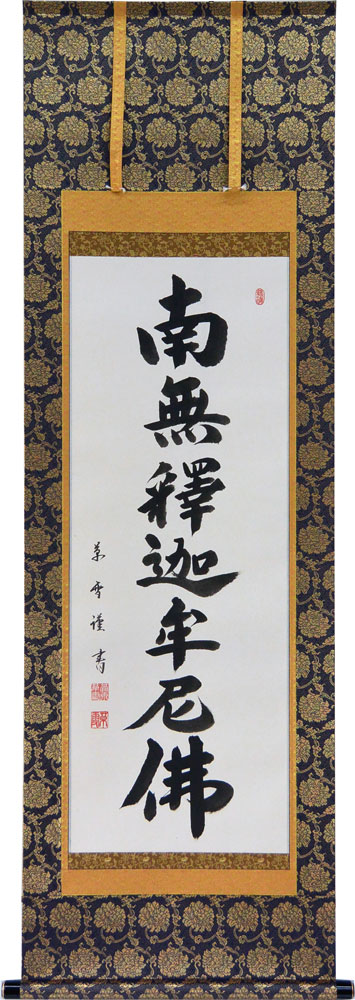 南無釋迦牟尼佛
草雪謹書